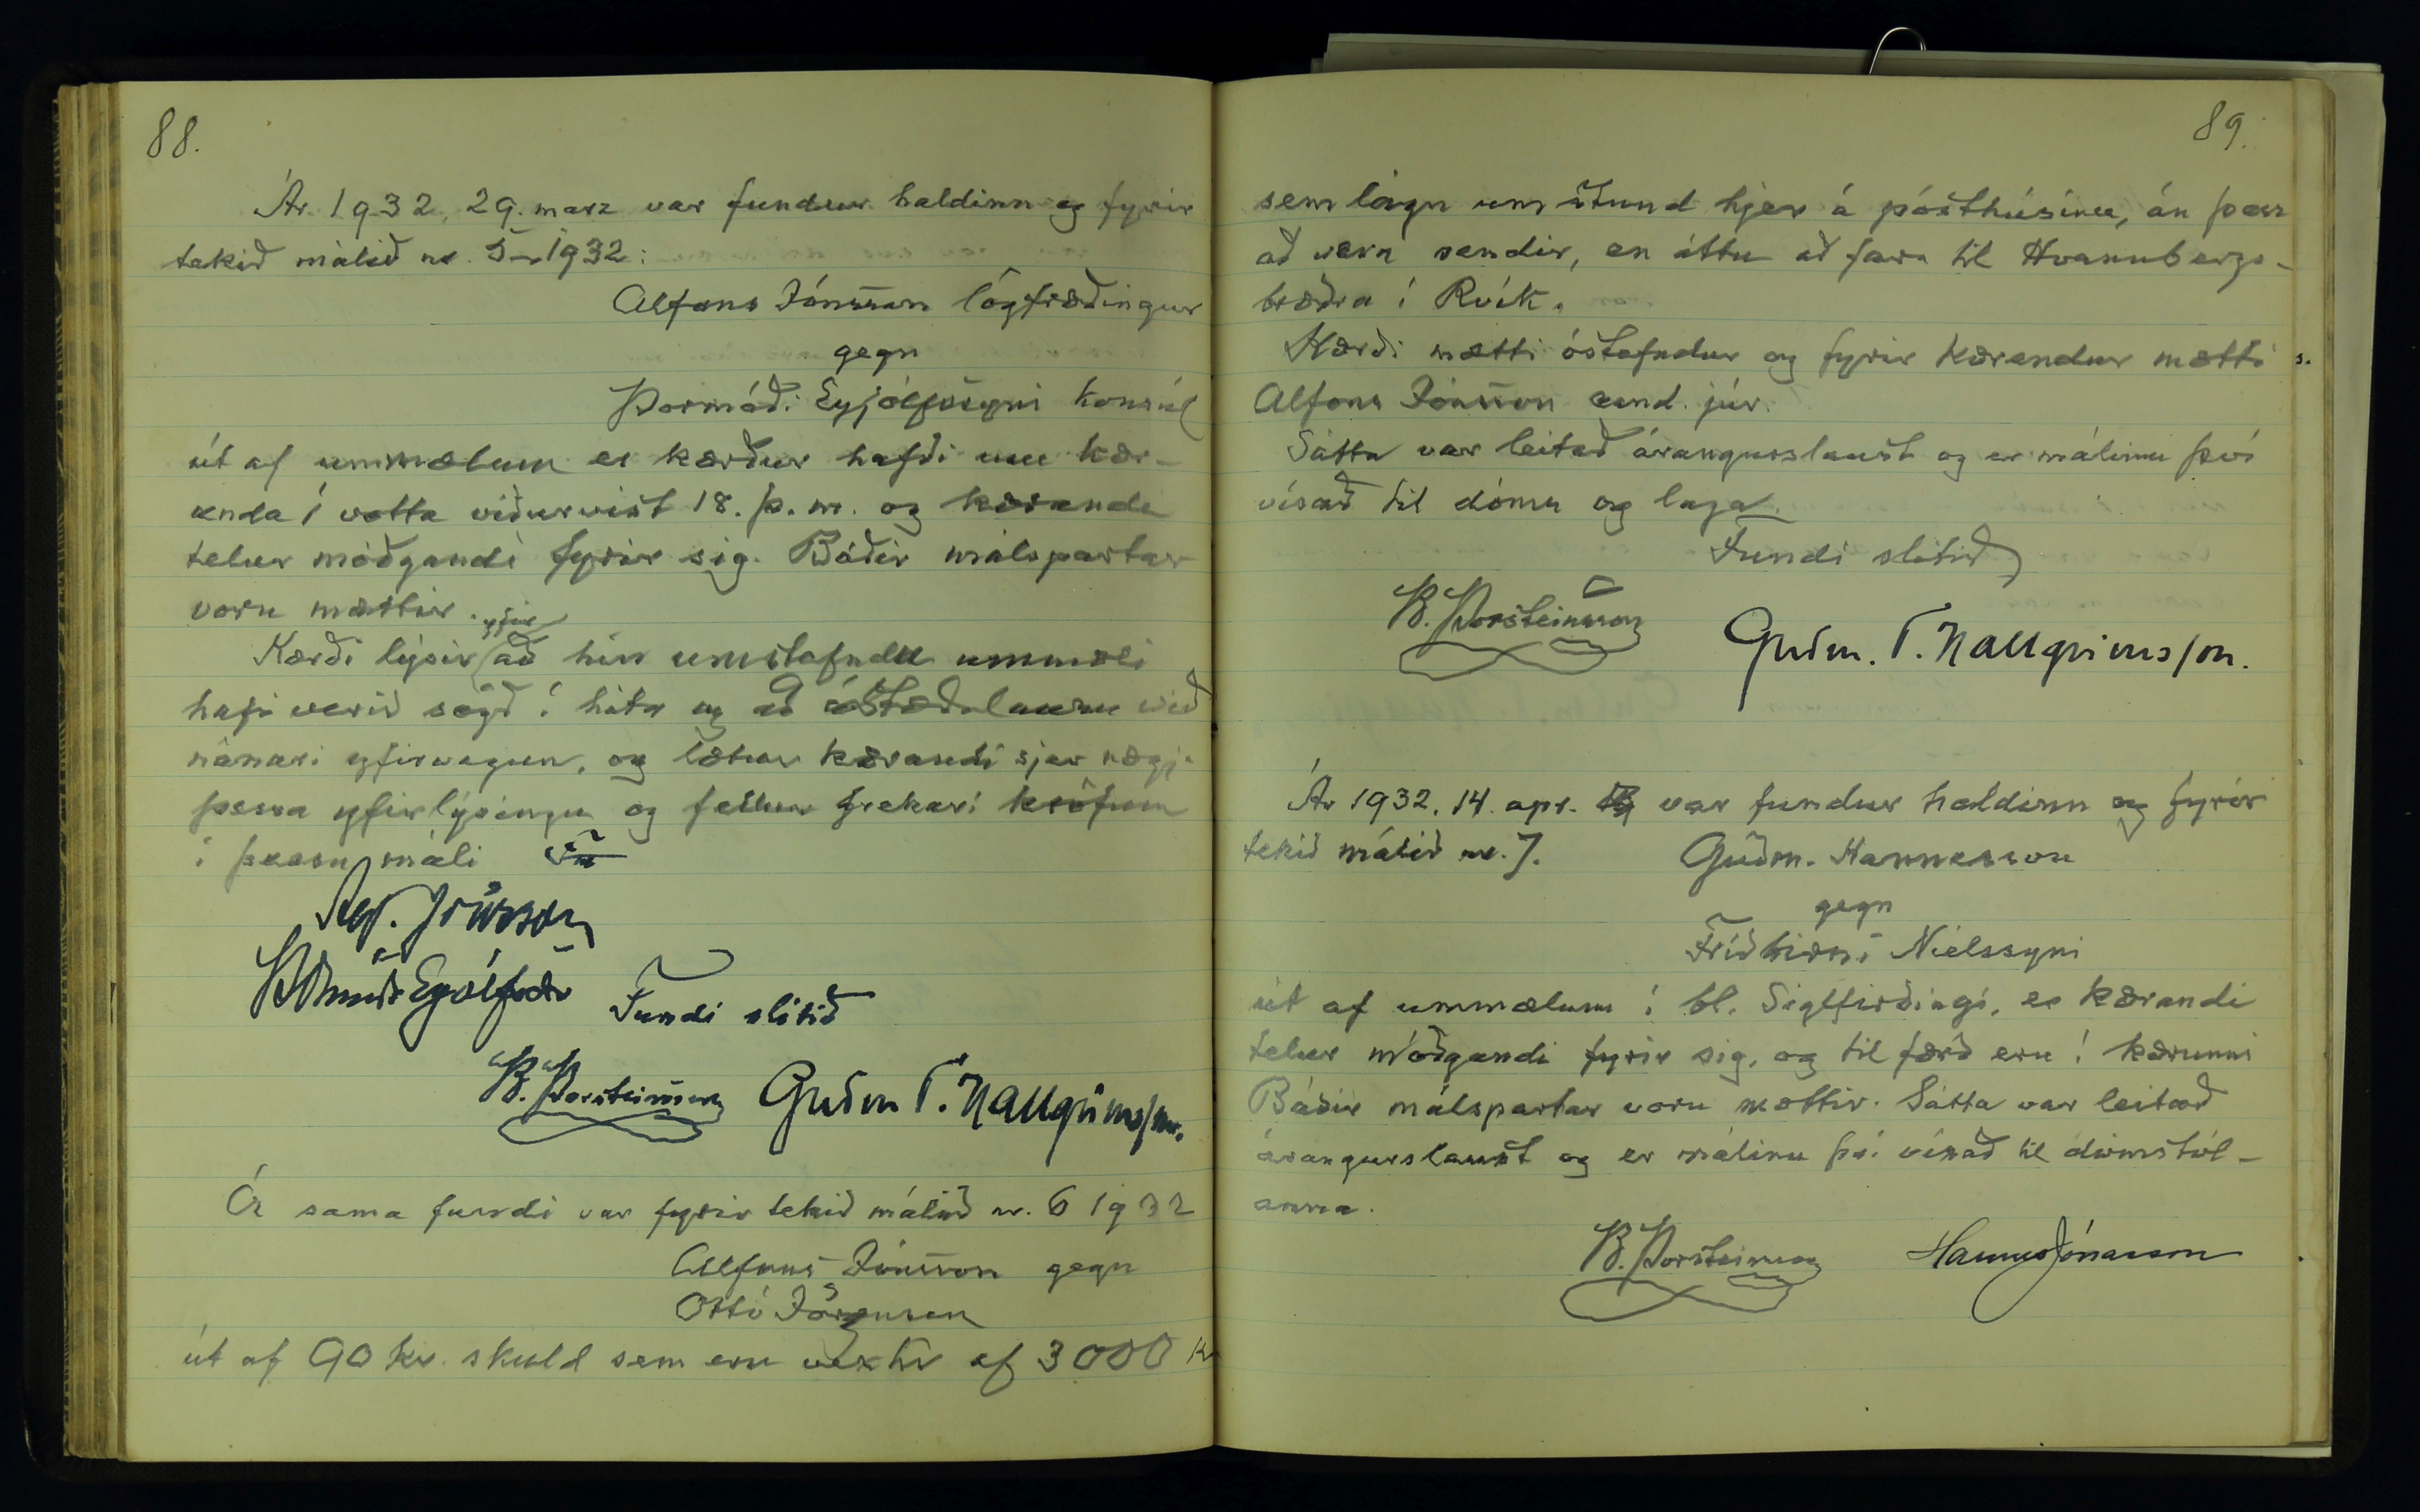 88.
Ár 1932, 29. marz var fundur haldinn og fyrir
tekið málið nr. 5 - 1932:
Alfons Jónsson lögfræðingur
gegn
Þormóði Eyjólfssyni konsúl
út af ummælum er kærður hafði um kær-
anda í votta viðurvist 18. þ.m. og kærandi
telur móðgandi fyrir sig. Báðir málspartar
voru mættir.
Kærði lýsir yfir að hin umstefndu ummæli
hafi verið sögð í hita og að ástæðulausu við
nánari yfirvegun, og lætur kærandi sjer nægja
þessa yfirlýsingu og fellur frekari kröfum
í þessu máli
Alf. Jónsson
Þormóður Eyjólfsson
Fundi slitið
B. Þorsteinsson Guðm. T. Hallgrímsson.
Á sama fundi var fyrir tekið málið nr. 6 1932
Alfons Jónsson gegn
Ottó Jörgensen
út af 90 kr. skuld sem eru vextir af 3000 kr
89.
sem lágu um stund hjer á pósthúsinu, án þess
að vera sendir, en áttu að fara til Hvannbergs-
bræðra í Rvík.
Kærði mætti óstefndur og fyrir kærendur mætti
Alfons Jónsson cand. júr.
Sátta var leitað árangurslaust og er málinu því
vísað til dóms og laga.
Fundi slitið
B. Þorsteinsson
Guðm. T. Hallgrímsson.
Ár 1932, 14. apr. var fundur haldinn og fyrir
tekið málið nr. 7.
Guðm. Hannesson
gegn
Friðbirni Níelssyni
út af ummælum í bl. Siglfirðingi, er kærandi
telur móðgandi fyrir sig, og til færð eru í kærunni
Báðir málspartar voru mættir. Sátta var leitað
árangurslaust og er málinu því vísað til dómstól-
anna.
B. Þorsteinsson Hannes Jónasson